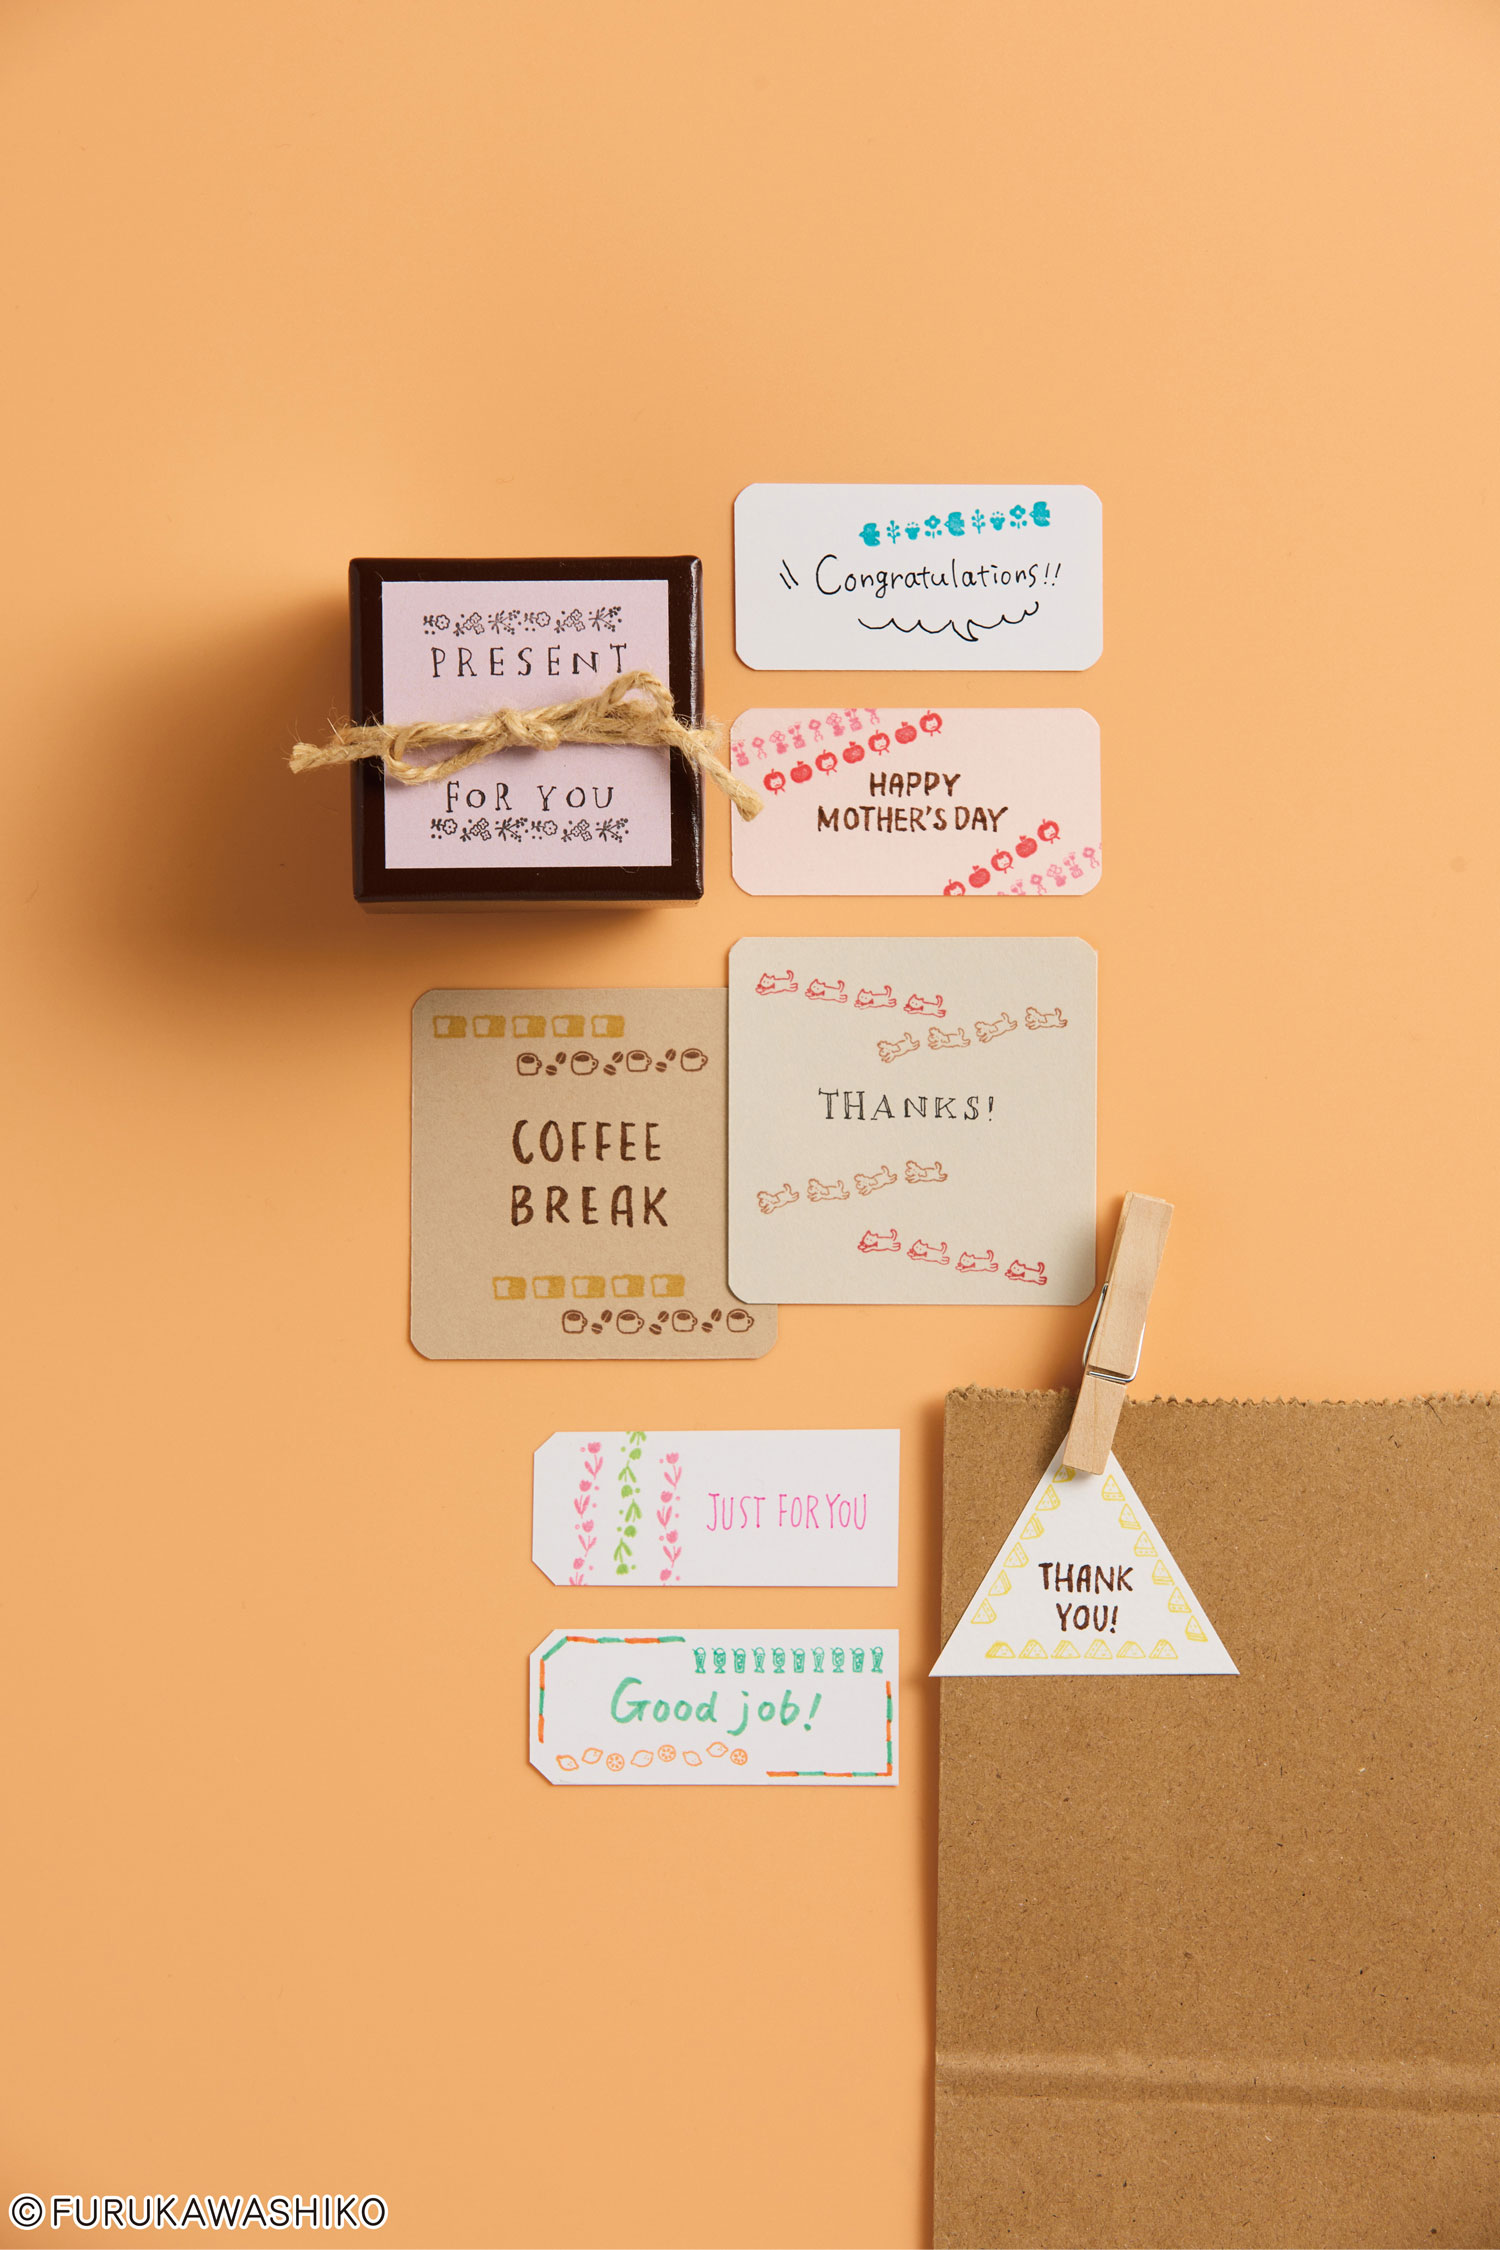 PRESENT
FOR YOU
Congratulations!!
HAPPY
MOTHER'S DAY
COFFEE
BREAK
THANKS!
JUST FOR YOU
THANK
YOU!
Good job!
©FURUKAWASHIKO